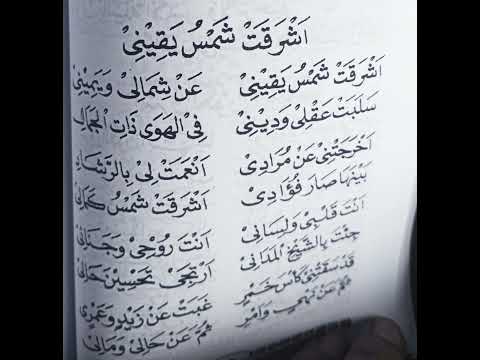 اَشْرَقَتْ شَمْسُ يَقِيْنِيْ
اَشْرَقَتْ شَمْسُ يَقِيْنِيْ عَنْ شِمَالِيْ وَيَمِيْنِيْ
سَلَبَتْ عَقْلِيْ وَدِيْنِيْ فِيْ الْهَوَى ذَاتِ الْجَمَالِ
اَخْرَجَتْنِيْ عَنْ مُرَادِيْ اَنْعَمَتْ لِيْ بِالرَّشَادِ
بَيْنَهَا صَارَ فُؤَادِيْ اَشْرَقَتْ شَمْسُ كَمَالِيْ
اَنْتَ قَلْبِيْ وَلِسَانِيْ اَنْتَ رُوْحِيْ وَجَنَانِيْ
جِئْتُ بِالشَّيْخِ الْمَدَانِيْ اَرْتَجِيْ تَحْسِيْنَ حَالِيْ
قَدْ سَقَتْنِيْ كَأْسَ خَمْرٍ غِبْتُ عَنْ زَيْدٍ وَعَمْرٍو
ثُمَّ عَنْ نَهْيِيْ وَاَمْرٍ ثُمَّ عَنْ حَالِيْ وَمَالِيْ